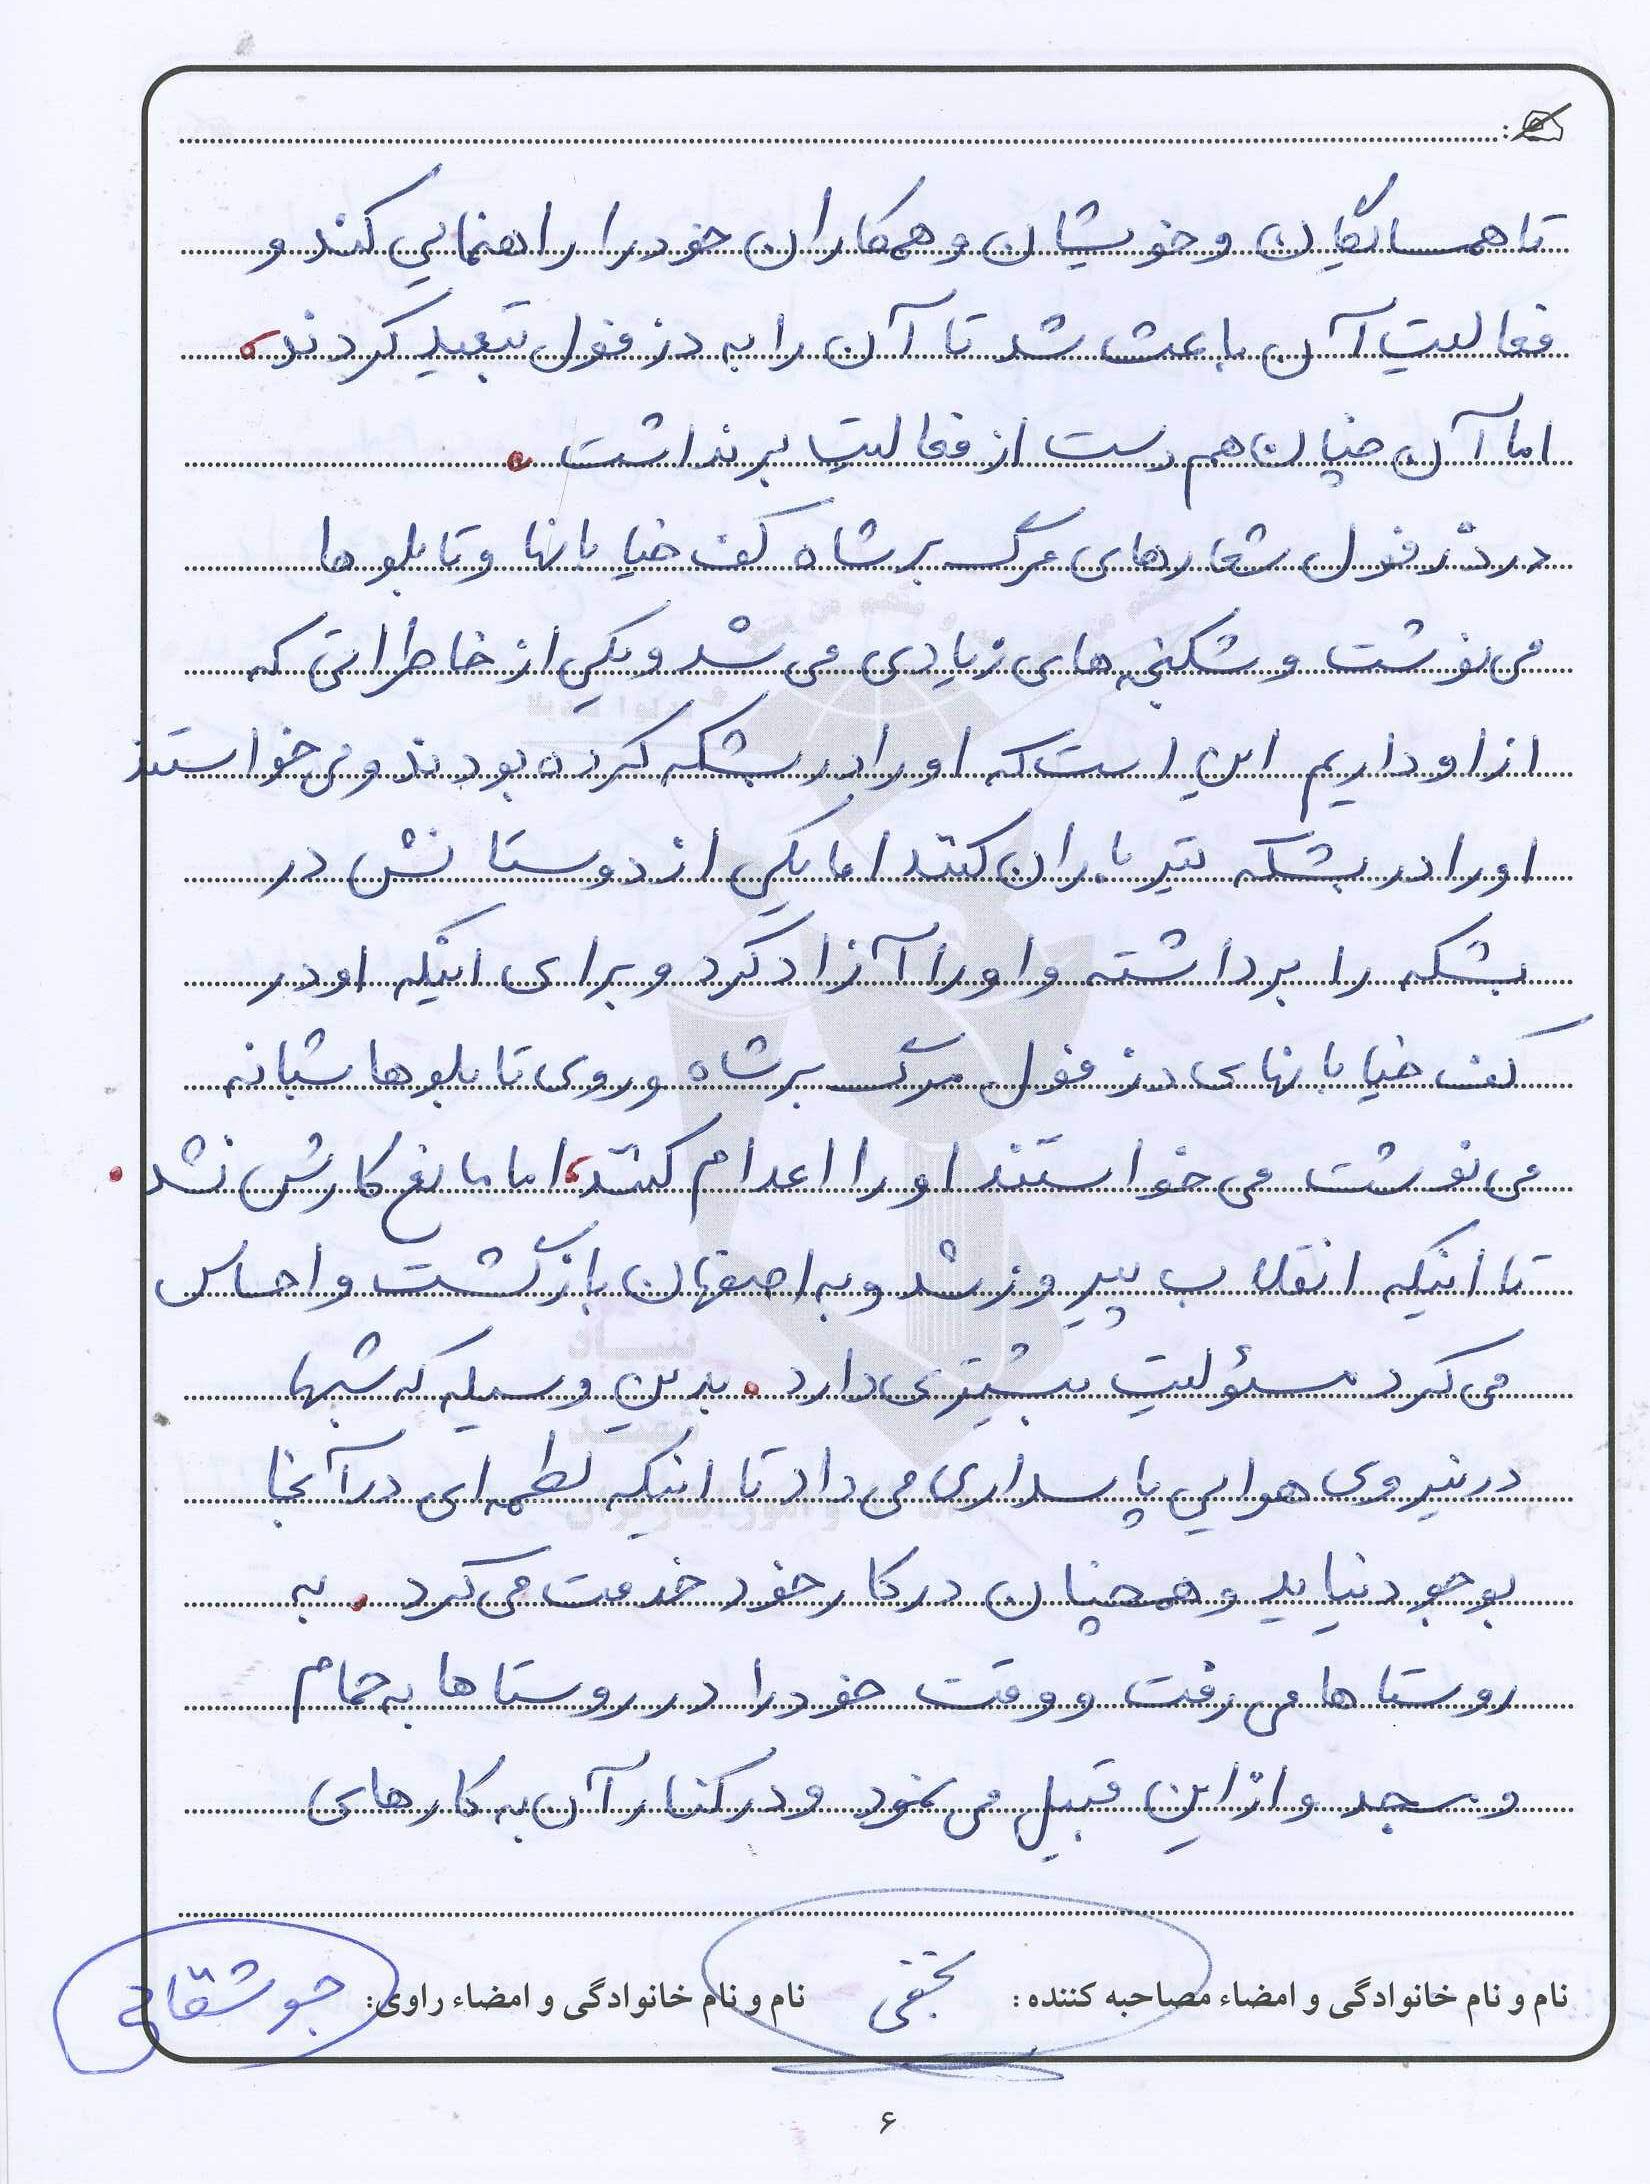 تا همسایگان و خویشان و همکاران خود را راهنمایی کند و
فعالیت آن باعث شد تا آن را به دزفول تبعید کردند،
اما آن چنان هم دست از فعالیت برنداشت .
در دزفول شعارهای مرگ بر شاه کف خیابانها و تابلوها
می نوشت و شکنجه های زیادی می شد و یکی از خاطراتی که
از او داریم این است که او را در بشکه کرده بودند و می خواستند
او را در بشکه تیرباران کنند اما یکی از دوستانش در
بشکه را برداشته و او را آزاد کرد و برای اینکه او در
کف خیابانهای دزفول مرگ بر شاه و روی تابلوها شبانه
می نوشت می خواستند او را اعدام کنند، اما مانع کارش نشد .
تا اینکه انقلاب پیروز شد و به اصفهان بازگشت و احساس
می کرد مسئولیت بیشتری دارد . بدین وسیله که شبها
در نیروی هوایی پاسداری می داد تا اینکه لطمه ای در آنجا
بوجود نیاید و همچنان در کار خود خدمت می کرد . به
روستاها می رفت و وقت خود را در روستاها به حمام
و مسجد و از این قبیل می نمود و در کنار آن به کارهای
نام و نام خانوادگی و امضاء مصاحبه کننده : نام و نام خانوادگی و امضاء راوی: جوشقانی
۶